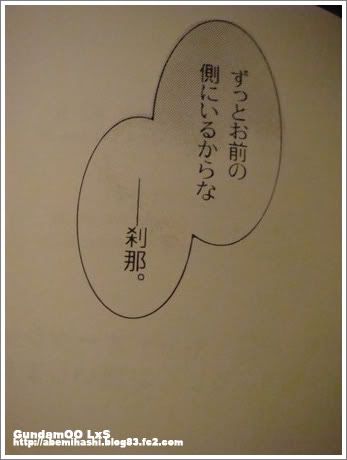 ずっとお前の
側にいるからな
──刹那。
GundamOO LxS
http://abemihashi.blog83.fc2.com